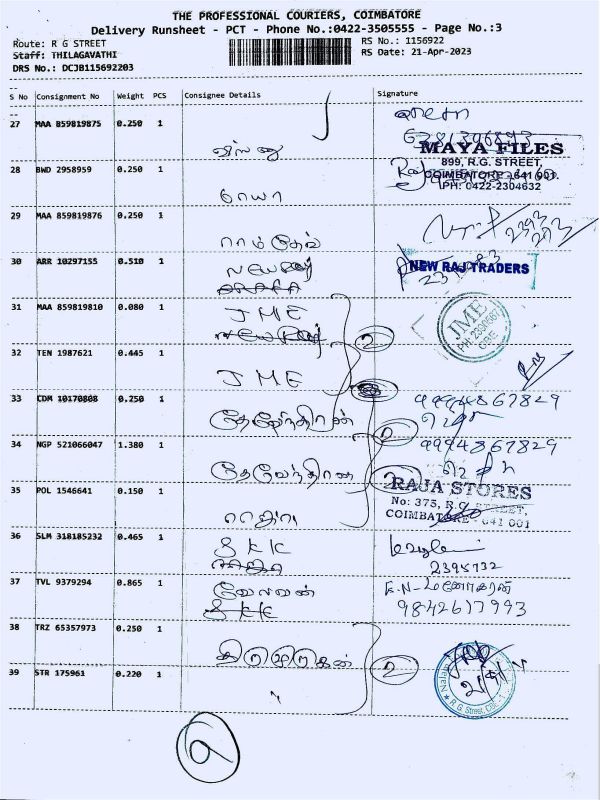 THE PROFESSIONAL COURIERS, COIMBATORE
Delivery Runsheet - PCT - Phone No.:0422-3505555 - Page No.:3
Route: R G STREET
RS No.: 1156922
Staff: THILAGAVATHI
RS Date: 21-Apr-2023
DRS No.: DCJB115692203
S No Consignment No Weight PCS Consignee Details Signature
27 MAA 859819875 0.250 1
விஸ்ணு
MAYA FILES
899, R.G. STREET,
COIMBATORE - 641 001.
PH: 0422-2304632
28 BWD 2958959 0.250 1
மாயா
29 MAA 859819876 0.250 1
ராம்தேவ்
30 ARR 10297155 0.510 1
NEW RAJ TRADERS
31 MAA 859819810 0.080 1
JME
JME
CBE
32 TEN 1987621 0.445 1
JME
2
33 CDM 10170808 0.250 1
தேவேந்திரன்
9994867829
34 NGP 521066047 1.380 1
தேவேந்திரன்
9994867829
35 POL 1546641 0.150 1
ராஜா
RAJA STORES
No: 375, R.G. STREET,
COIMBATORE - 641 001
36 SLM 318185232 0.465 1
SKK
2395732
37 TVL 9379294 0.865 1
வேலவன்
SKK
K.N-மனோகரன்
9842617993
38 TRZ 65357973 0.250 1
திருமுருகன்
2
39 STR 175961 0.220 1
"
R G Street, CBE - 1
9